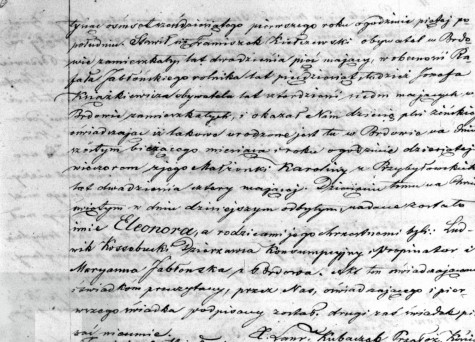 tysiąc osmset sześdziesiątego pierwszego roku o godzinie piątej po
południu. Stawił się Franciszek obywatel w Brdo
wie zamieszkały lat dwadzieścia pięć mający, w obecności Ra
fała Jabłońskiego rolnika lat pięćdziesiąt, tudzież Józefa
Książkiewicza obywatela lat czterdzieści siedm mających w
Brdowie zamieszkałych, i okazał Nam dziecię płci żeńskiej
oświadczając iż takowe urodzone jest tu w Brdowie na dniu
bieżącego miesiąca i roku o godzinie dziesiątej
wieczorem z jego Małżonki Karoliny z Przybyłowskich
lat dwadzieścia cztery mającej. Dziecięciu temu na Chrzcie
Świętym w dniu dzisiejszym odbytym, nadane zostało
imie Eleonora, a rodzicami jego chrzestnemi byli: Lud
wik Dzierżawca Konsumpcyjny i Propinator i
Maryanna Jabłońska z Brdowa. Akt ten oświadczającemu
i świadkom przeczytany, przez Nas, oświadczającego i pier
wszego świadka podpisany został, drugi zaś świadek pi
sać nieumie.
X. Kubaczak Przeor Kości